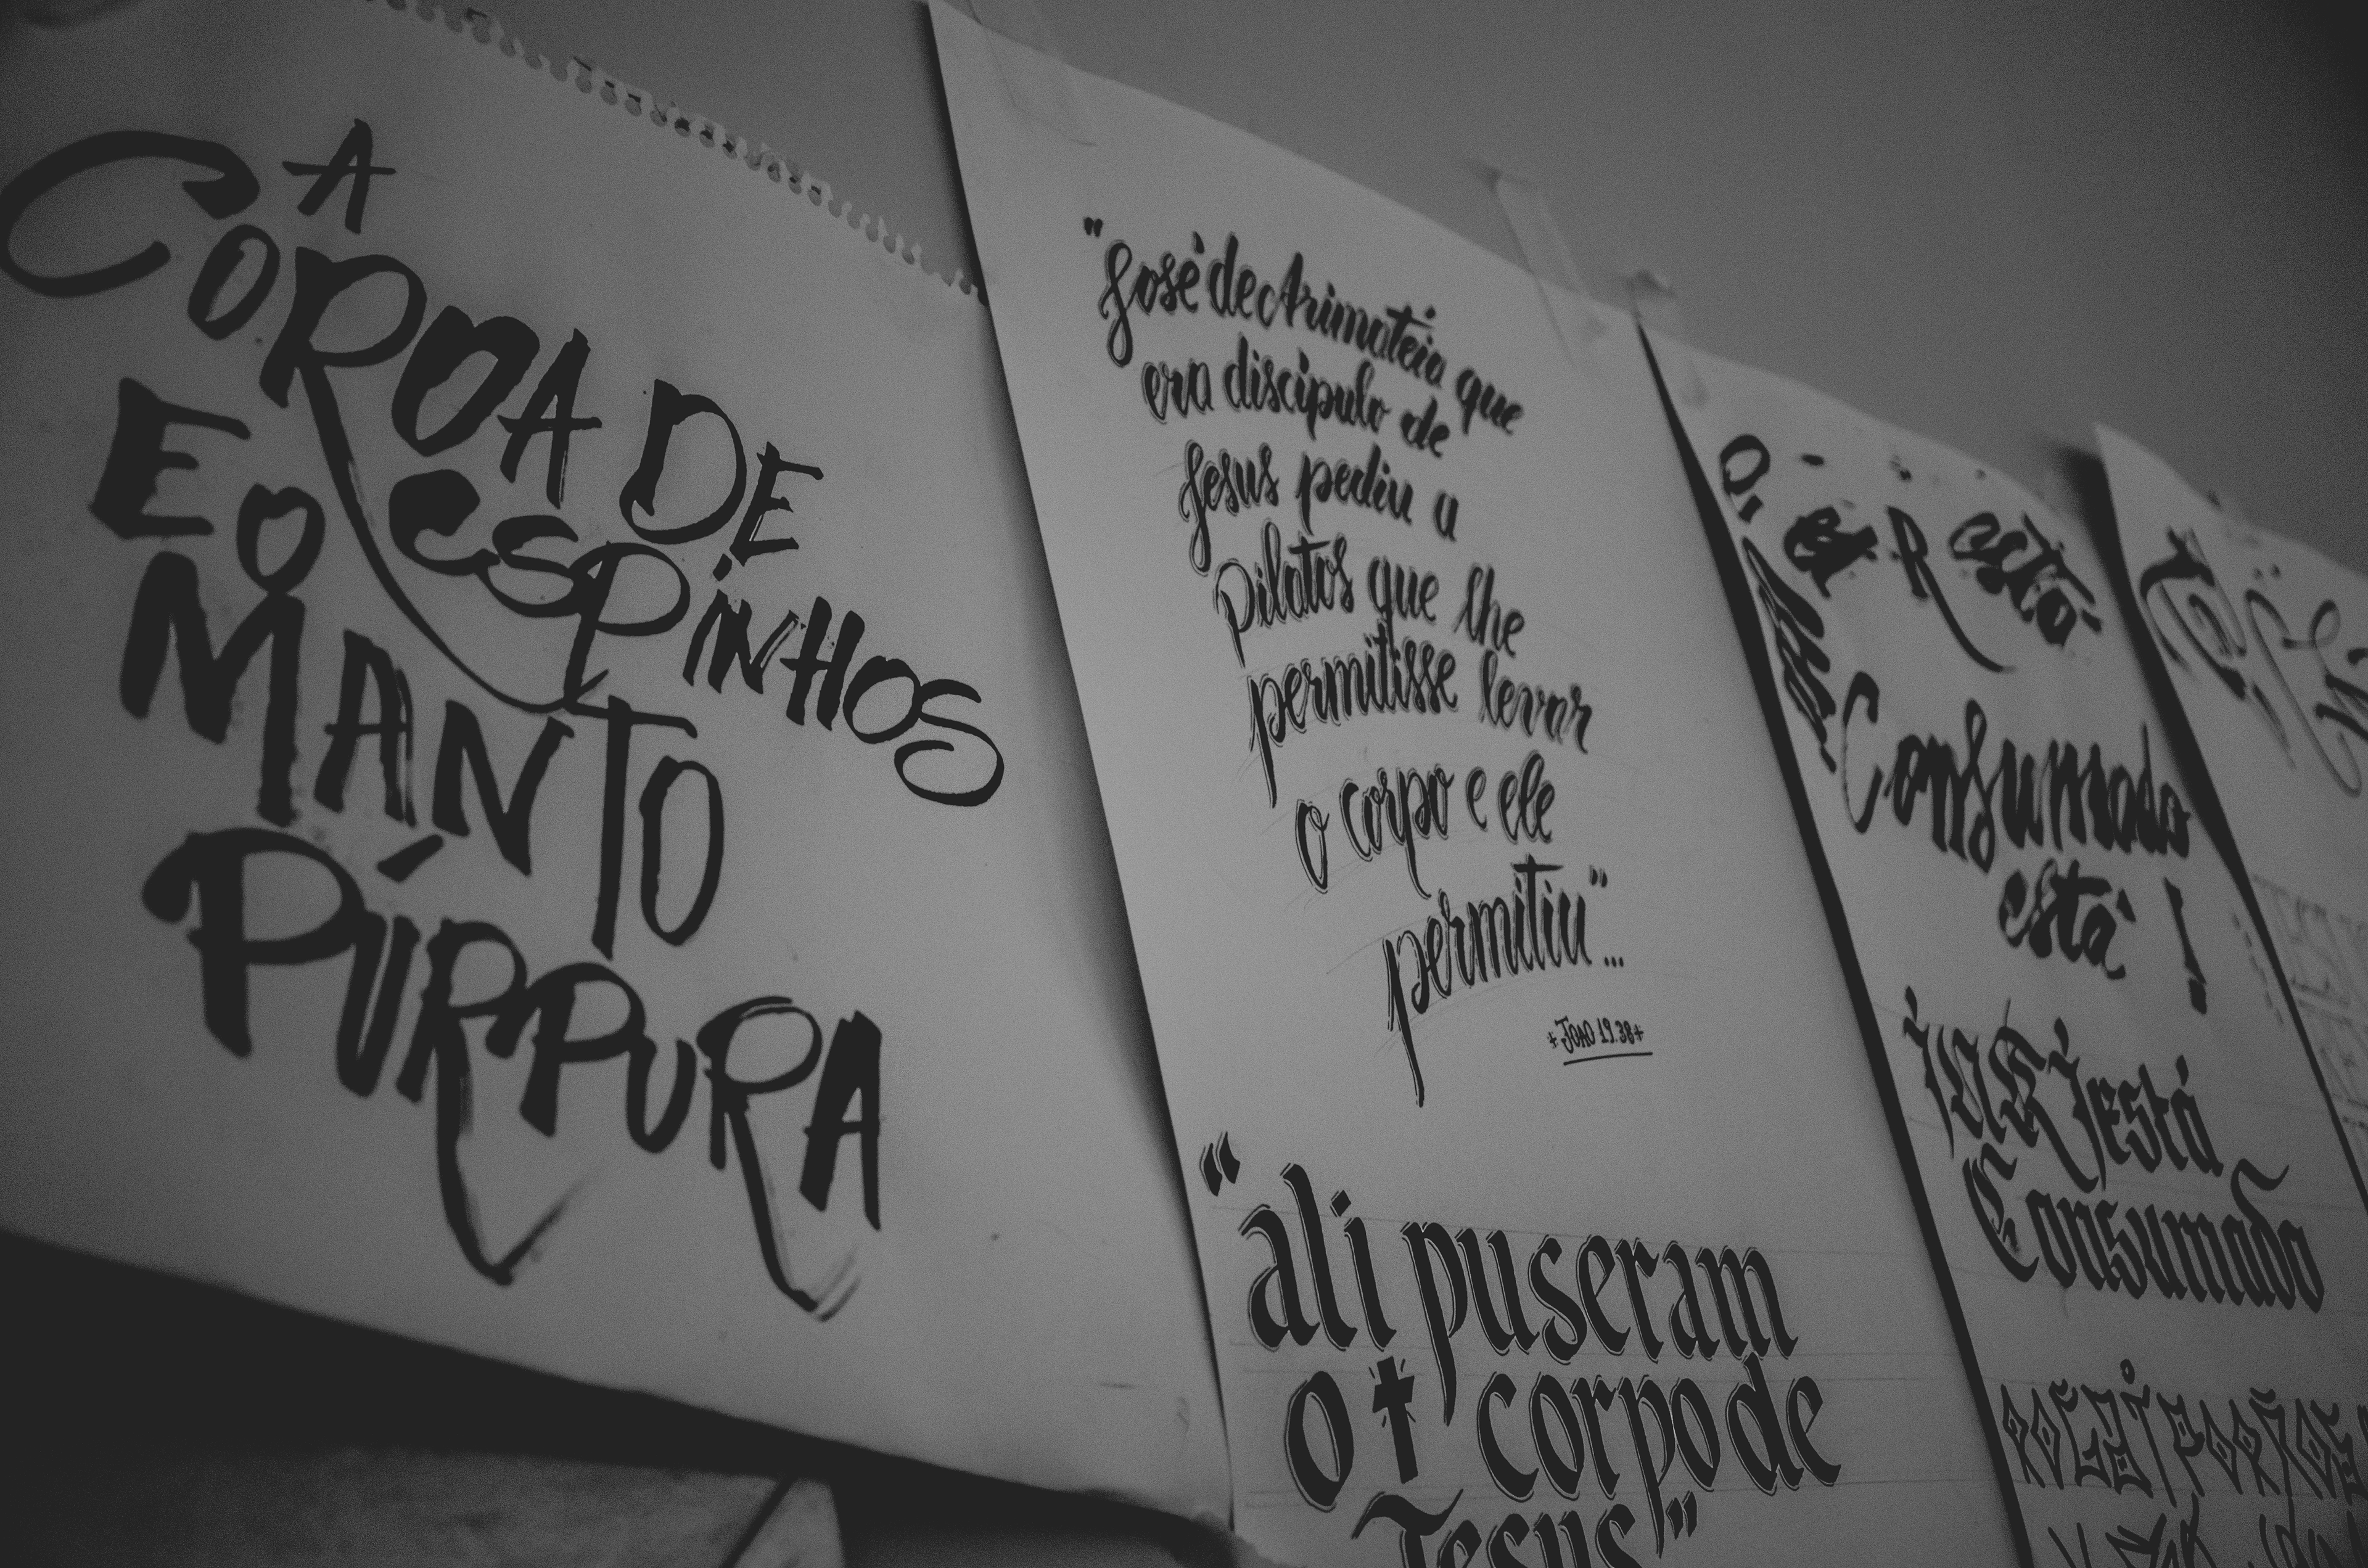 A
COROA DE
ESPINHOS
E O
MANTO
PÚRPURA
"José de Arimateia que
era discipulo de
Jesus pediu a
Pilatos que lhe
permitisse levar
o corpo e ele
permitiu"...
+JOAO 19.38+
"ali puseram
o corpo de
Jesus"
está
Consumado
está!
está
Consumado